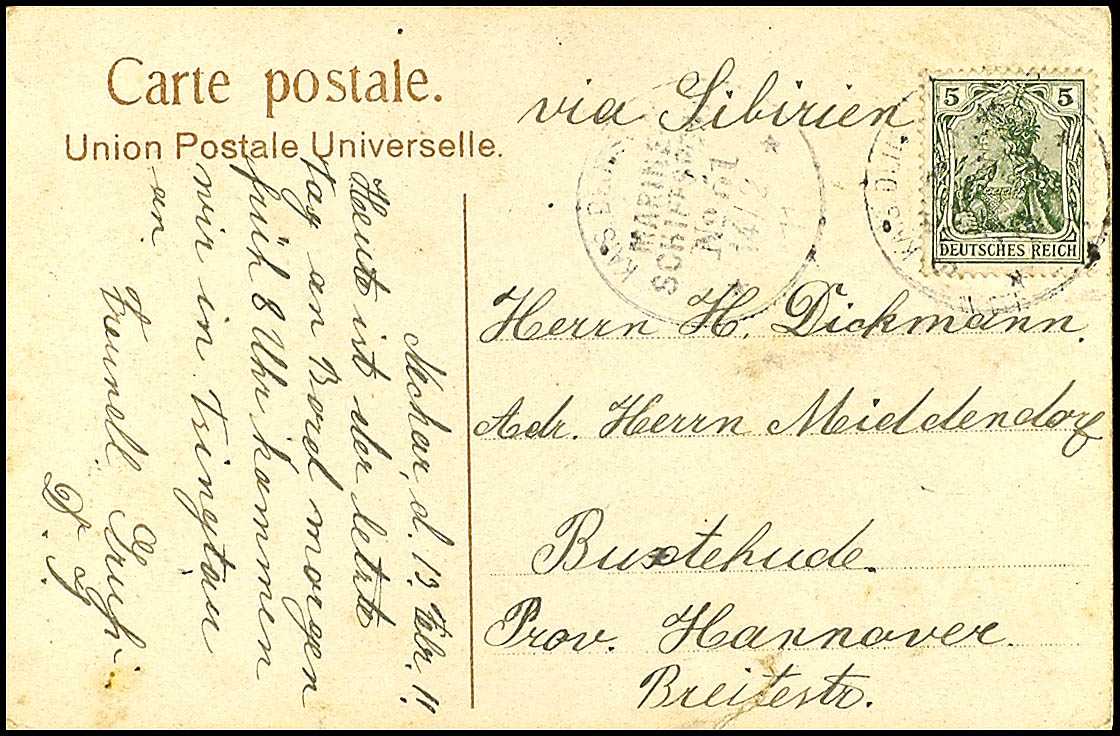 Carte postale.
Union Postale Universelle.
via Sibirien
5 5
DEUTSCHES REICH
KAIS. D.
MARINE
SCHIFFSPOST
No 61
14/2
11
Herrn H. Dickmann.
Adr. Herrn Middendorf
Buxtehude.
Prov. Hannover.
Breitestr.
d. 13. Febr. 11.
Heute ist der letzte
Tag an Bord morgen
früh 8 Uhr kommen
wir in Tsingtau
an.
Freundl. Gruß.